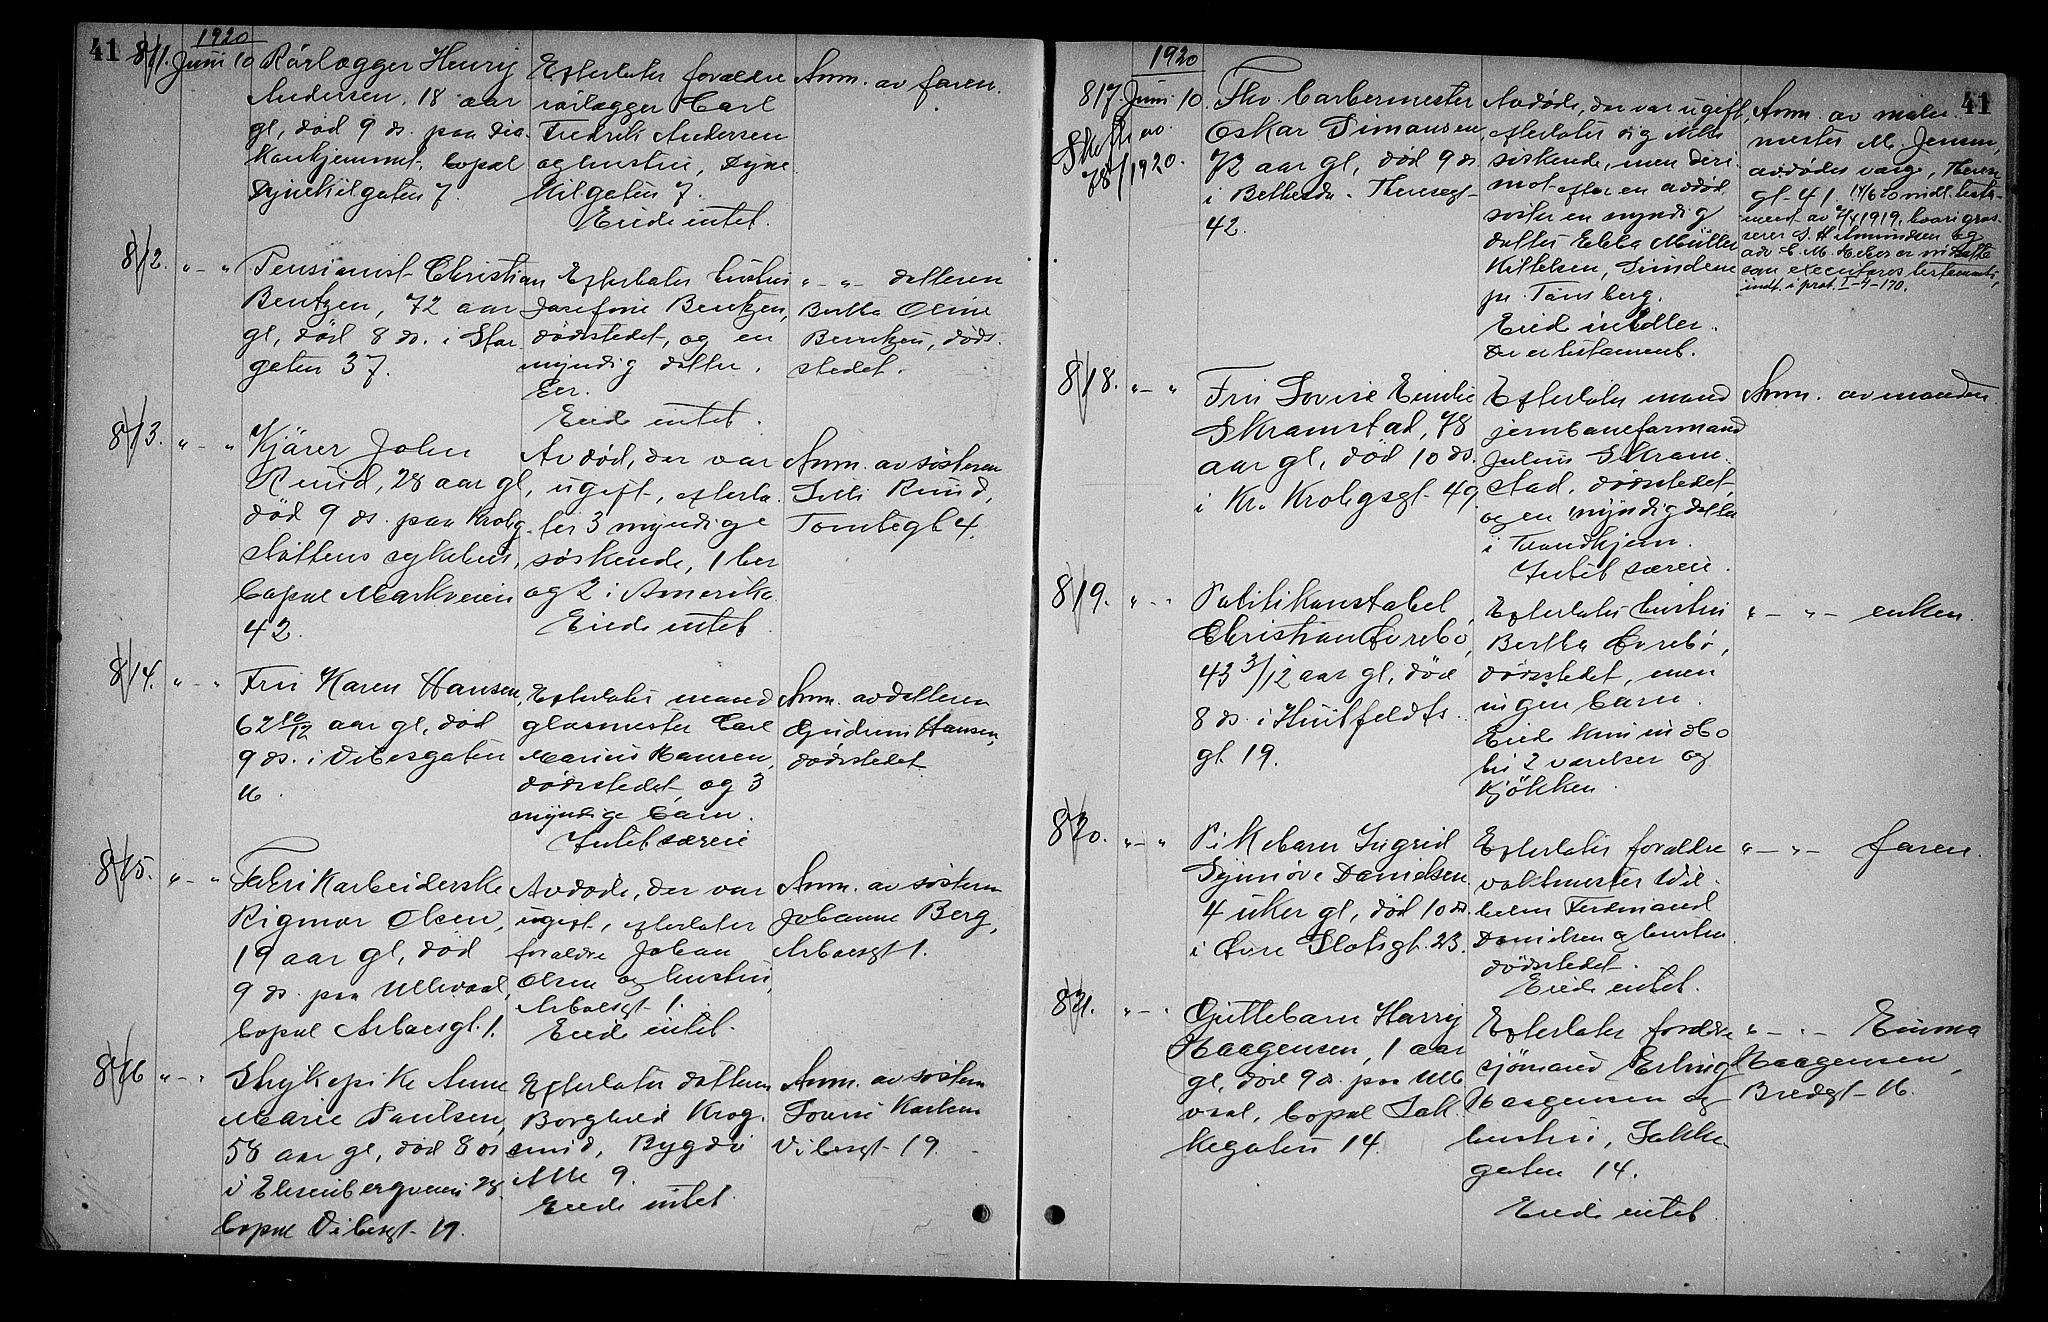 41
1920
811. Juni 10 Rörlægger Henry
Andersen, 18 aar
gl, död 9 ds. paa Dia
konhjemmet, bopæl
Dynekilgaten 7.
Efterlater forældre
rörlægger Carl
Fredrik Andersen
og hustru, Dyne
kilgaten 7.
Eiede intet.
Anm. av faren.
812. " - " Pensionist Christian
Bentzen, 72 aar
gl, död 8 ds. i Stor
gaten 37.
Efterlater hustru
Josefine Bentzen,
dödsstedet, og en
myndig datter.
Eier.
Eiede intet.
" - " - datteren
Berthe Oline
Berntzen, döds.
stedet.
813. " - " Kjörer John
Ruud, 28 aar gl,
död 9 ds. paa Krohg
stöttens sykehus,
bopæl Markveien
42.
Avdöd, der var
ugift, efterla.
ter 3 myndige
söskende, 1 her
og 2 i Amerika
Eiede intet
Anm. av sösteren
Lilli Ruud,
Tomtegt 4.
814. " - " Fru Karen Hansen,
62 10/12 aar gl, död
9 ds. i Vibesgaten
16.
Efterlater mand
glasmester Carl
Marius Hansen,
dödsstedet, og 3
myndige barn.
Intet særeie
Anm. av datteren
Gudrun Hansen,
dödsstedet.
815. " - " Fabrikarbeiderske
Rigmor Olsen,
19 aar gl, död
9 ds. paa Ullevaal,
bopæl Arboesgt. 1.
Avdöde, der var
ugift, efterlater
forældre Johan
Olsen og hustru,
Arboesgt 1.
Eiede intet.
Anm. av sösteren
Johanne Berg,
Arboesgt 1.
816 " - " Strykepike Anne
Marie Paulsen,
58 aar gl, död 8 ds
i Elisenbergveien 28
bopæl Vibesgt 19.
Efterlater datteren
Borghild Krog.
smid, Bygdö
Alle 9.
Eiede intet.
Anm. av söstern
Lovise Karlsen
Vibesgt 19.
41
1920
817. Juni 10. Fhv. barbermester
Oskar Simonsen,
72 aar gl, död 9 ds
i Bethesda. Theresegt
42.
1920.
Avdöde, der var ugift,
efterlater sig ikke
söskende, men deri.
mot efter en avdöd
söster en myndig
datter Ebba Müller
Kittelsen, Sundene
pr. Tönsberg.
Eiede midler.
Der er testament.
Anm. av maler.
mester M. Jensen,
avdödes værge, Therese
gt 41. 14/6 20 indl. testa-
ment av 1919, hvori gros-
serer S. H. Amundsen og
adv. C. M. er indsatte
som executores testamenti,
indf. i prot. I-4-170.
818. " - " Fru Lovise Emilie
Skramstad, 78
aar gl, död 10 ds.
i Kr. Krohgsgt 49.
Efterlater mand
jernbaneformand
Julius Skram.
stad, dödsstedet,
og en myndig datter
i Trondhjem.
Intet særeie.
Anm. av manden.
819. " - " Politikonstabel
Christian Övrebö,
43 3/12 aar gl, död
8 ds. i Huitfeldts.
gt 19.
Efterlater hustru
Bertha Övrebö,
dödsstedet, men
ingen barn.
Eiede kun indbo
til 2 værelser og
kjökken.
" - " - enken.
820. " - " Pikebarn Ingrid
Synnöve Danielsen
4 uker gl, död 10 ds.
i Övre Slotsgt. 23.
Efterlater forældre
vaktmester Wil-
helm Ferdinand
Danielsen og hustru
dödsstedet.
Eiede intet.
" - " - faren.
821. " - " Guttebarn Harry
Haagensen, 1 aar
gl, död 9 ds. paa Ulle
vaal, bopæl Lak
kegaten 14.
Efterlater forældre
sjömand Erling
Haagensen og
hustru, Lakke
gaten 14.
Eiede intet.
" - " - Emma
Haagensen,
Bredgt 16.